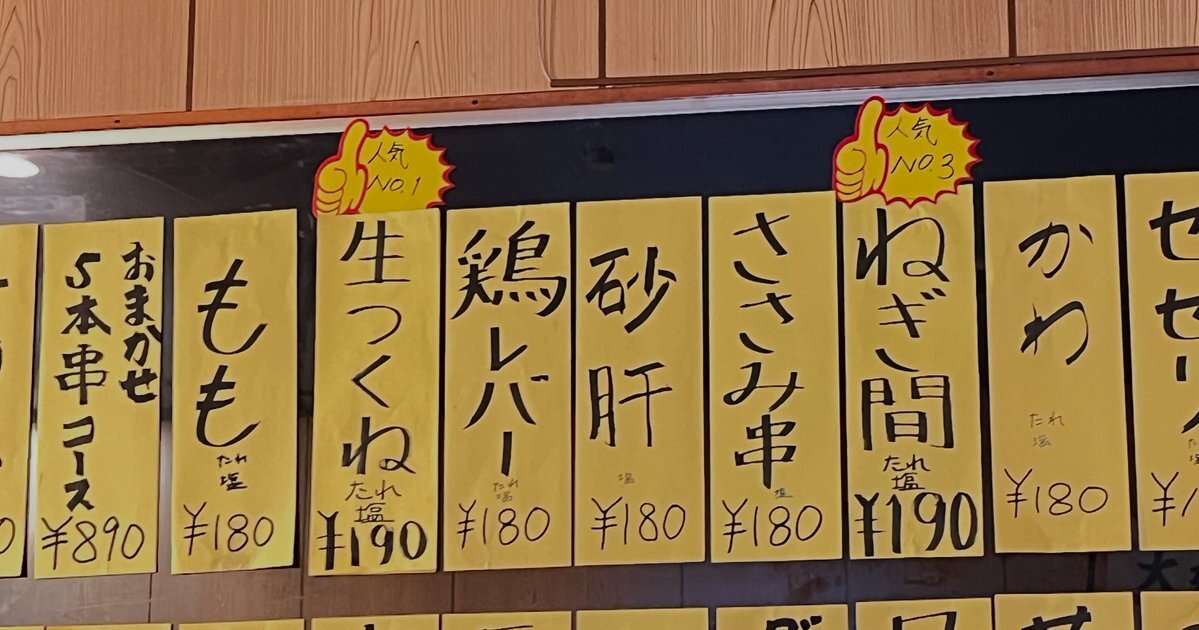 おまかせ
5本串コース
¥890
もも
たれ
塩
¥180
人気
NO.1
生つくね
たれ
塩
¥190
鶏レバー
たれ
塩
¥180
砂肝
塩
¥180
ささみ串
塩
¥180
人気
NO.3
ねぎ間
たれ
塩
¥190
かわ
たれ
塩
¥180